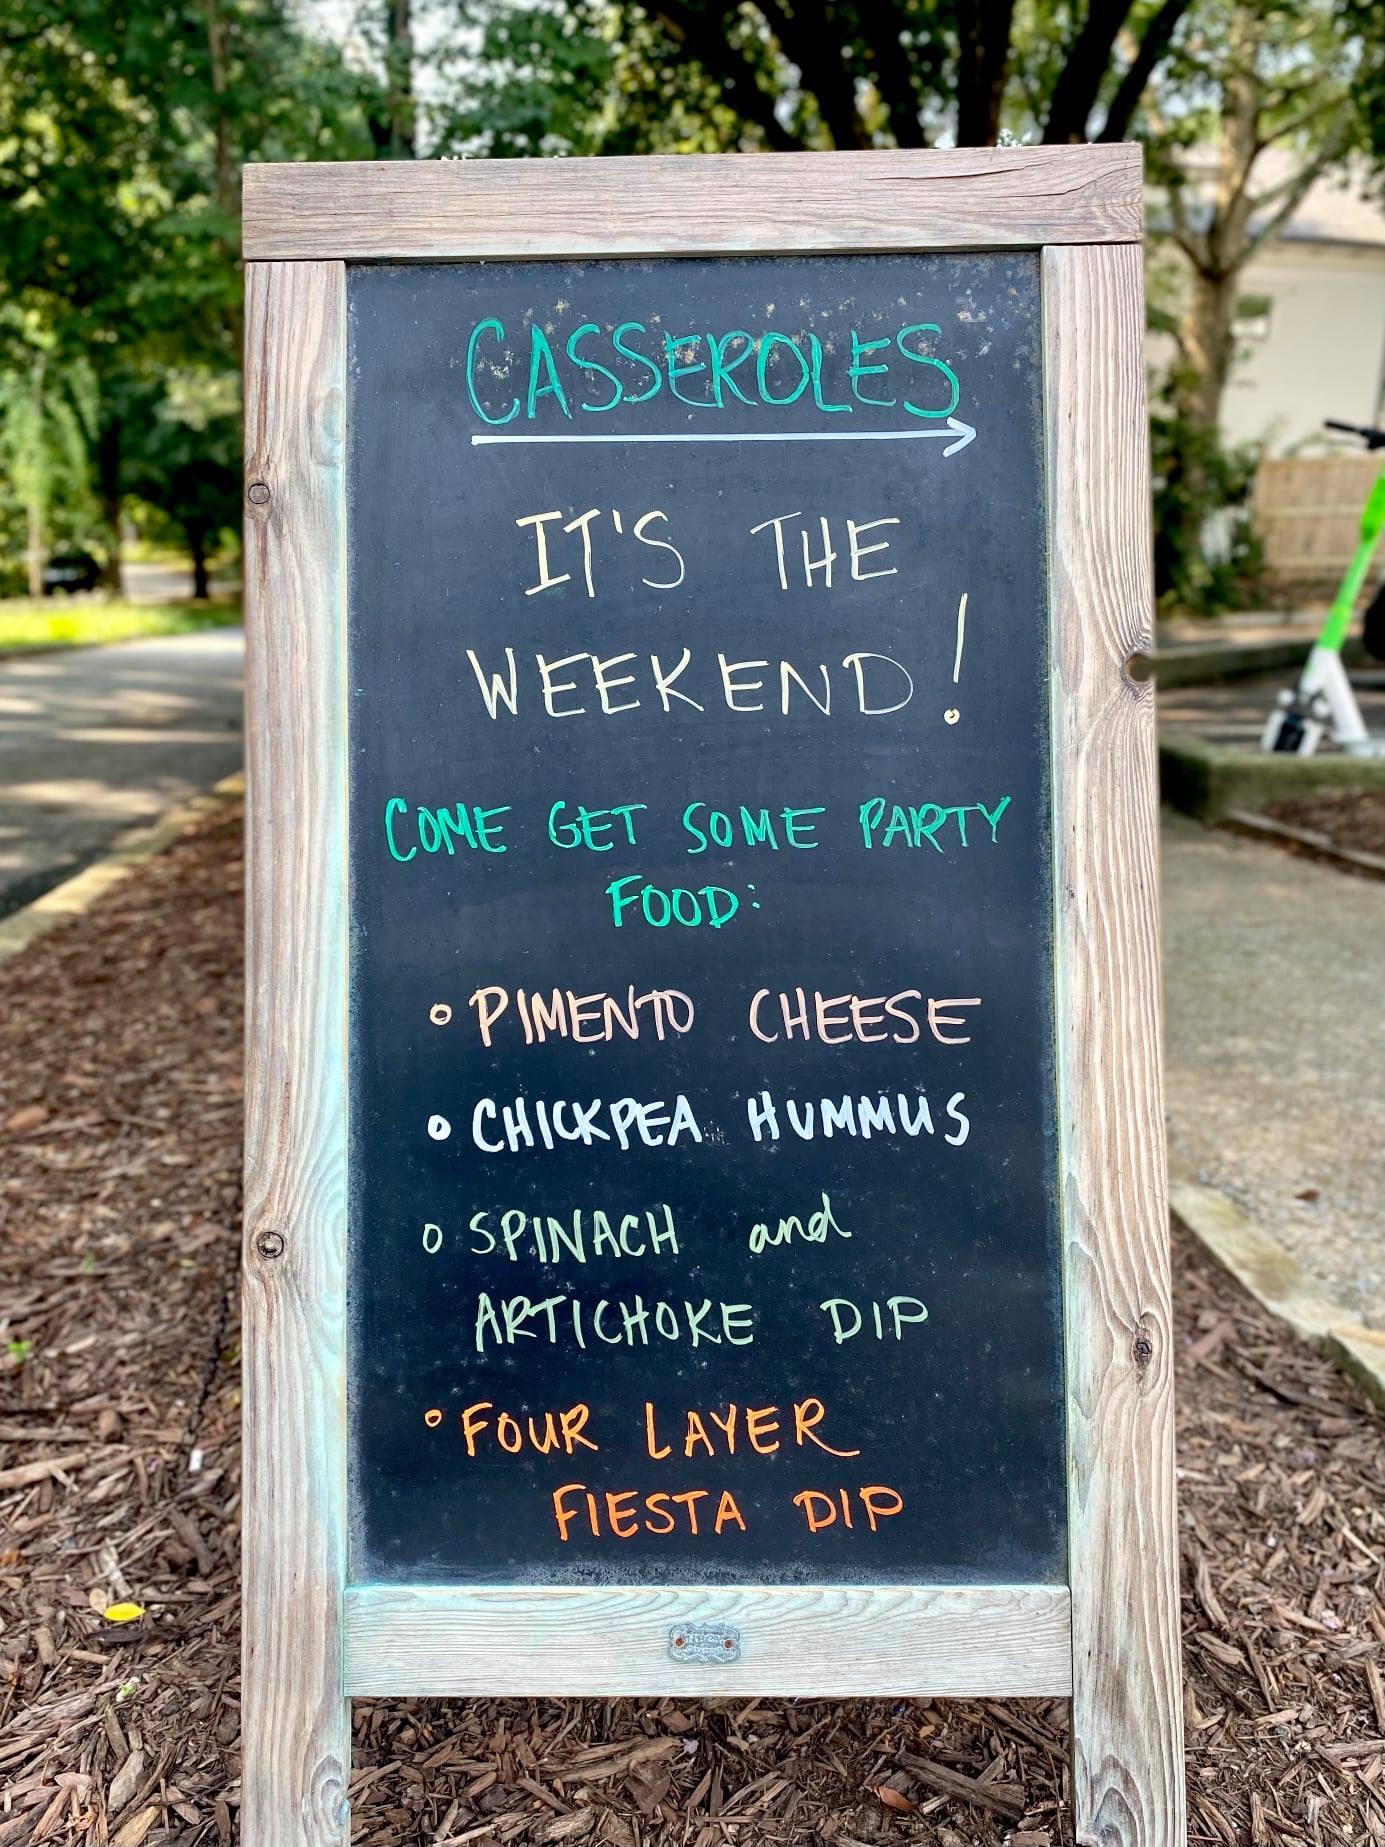 CASSEROLES
IT'S THE
WEEKEND!
COME GET SOME PARTY
FOOD:
PIMENTO CHEESE
CHICKPEA HUMMUS
SPINACH and
ARTICHOKE DIP
FOUR LAYER
FIESTA DIP